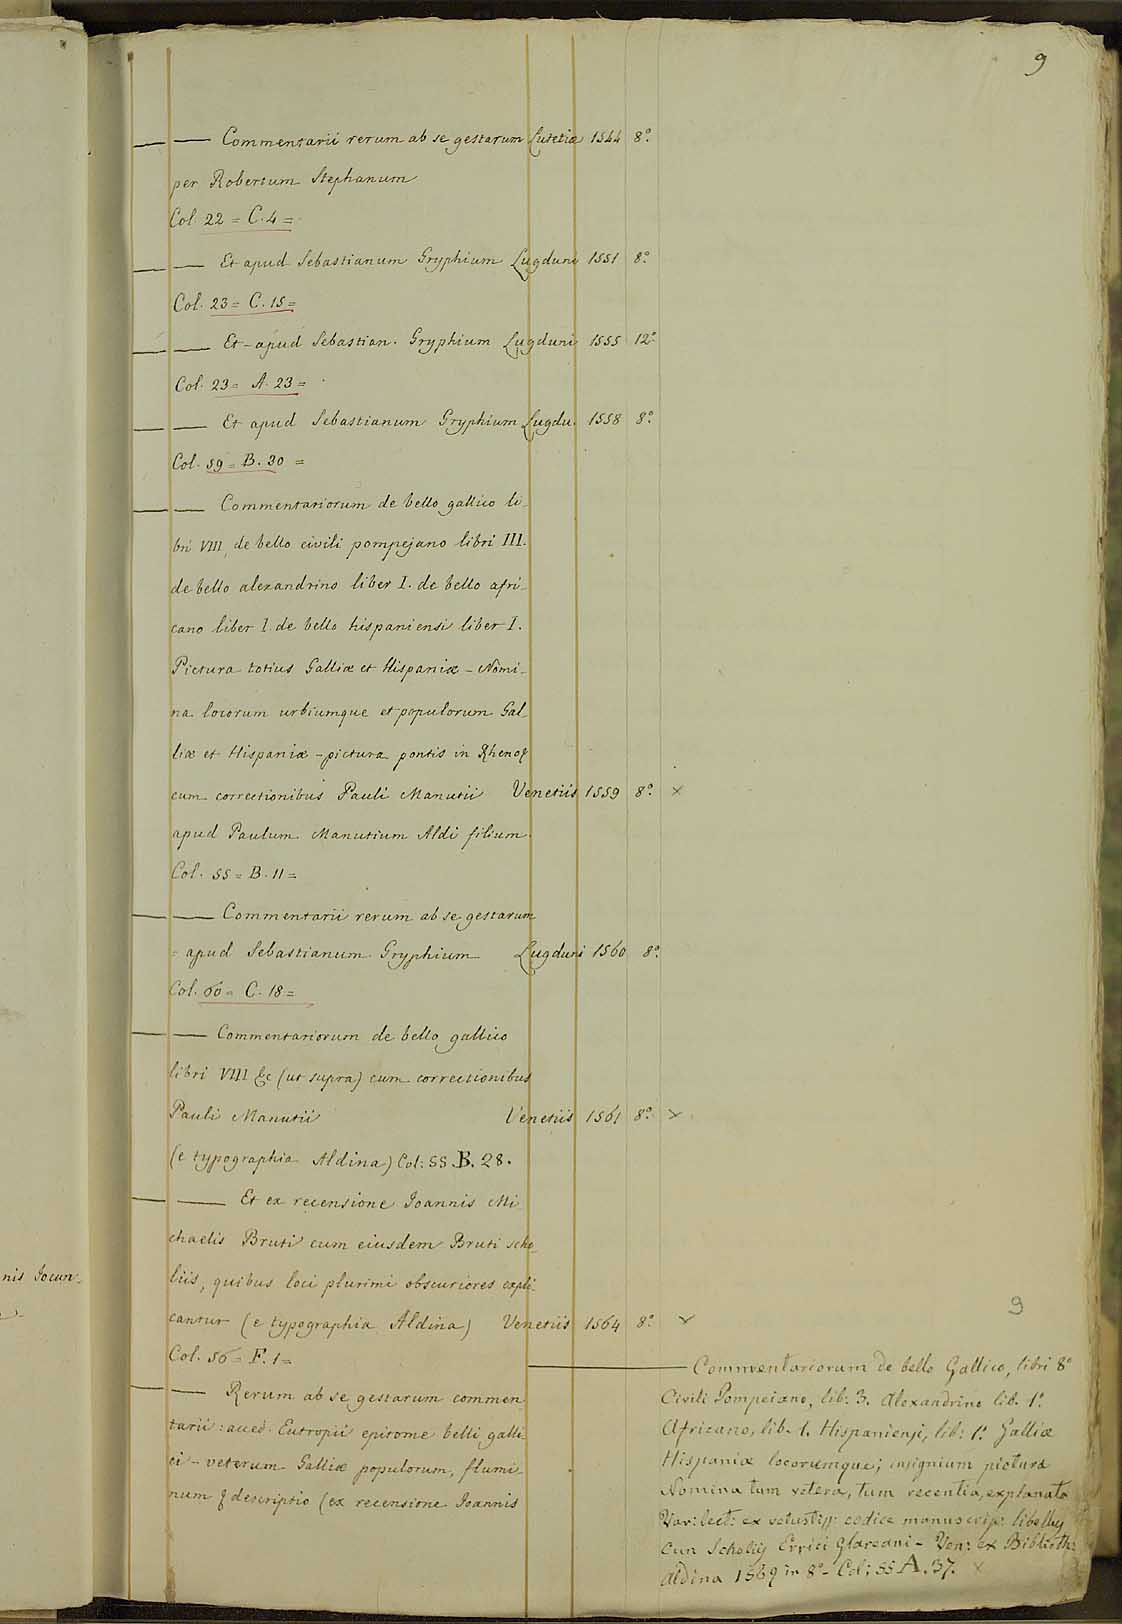 9
— — Commentarii rerum ab se gestarum Lutetiæ 1544 8.°
per Robertum Stephanum
Col. 22 = C. 4 =
— — Et apud Sebastianum Gryphium Lugduni 1551 8.°
Col. 23 = C. 15 =
— — Et - apud Sebastian. Gryphium Lugduni 1555 12.°
Col. 23 = A. 23 =
— — Et apud Sebastianum Gryphium Lugdu. 1558 8.°
Col. 59 = B. 30 =
— — Commentariorum de bello gallico li-
bri VIII, de bello civili pompejano libri III.
de bello alexandrino liber I. de bello afri-
cano liber I. de bello hispaniensi liber I.
Pictura totius Galliæ et Hispaniæ - Nomi-
na locorum urbiumque et populorum Gal-
liæ et Hispaniæ - pictura pontis in Rheno &
cum correctionibus Pauli Manutii Venetiis 1559 8.° ×
apud Paulum Manutium Aldi filium.
Col. 55 = B. 11 =
— — Commentarii rerum ab se gestarum
= apud Sebastianum Gryphium Lugduni 1560 8.°
Col. 60 = C. 18 =
— — Commentariorum de bello gallico
libri VIII &c (ut supra) cum correctionibus
Pauli Manutii Venetiis 1561 8.° ×
(e typographia Aldina) Col: 55. B. 28.
— — Et ex recensione Joannis Mi
chaelis Bruti cum eiusdem Bruti scho-
nis Jocun-
liis, quibus loci plurimi obscuriores expli-
cantur (e typographia Aldina) Venetiis 1564 8.° ×
Col. 56 = F. 1 =
— — Rerum ab se gestarum commen
tarii: acced. Eutropii epitome belli galli-
ci - veterum Galliæ populorum, flumi-
num & descriptio (ex recensione Joannis
9
— Commentariorum de bello Gallico, libri 8°
Civili Pompeiano, lib: 3. Alexandrino lib. 1.°
Africano, lib. 1. Hispaniensi, lib: 1.° Galliæ
Hispaniæ locorumque; insignium pictura
Nomina tum vetera, tum recentia, explanata
Var: lect: ex vetustiss: codice manuscrip: libellus
cum Scholijs Errici Glareani - Ven: ex Biblioth:
Aldina 1569 in 8.° - Col: 55 A. 37. ×